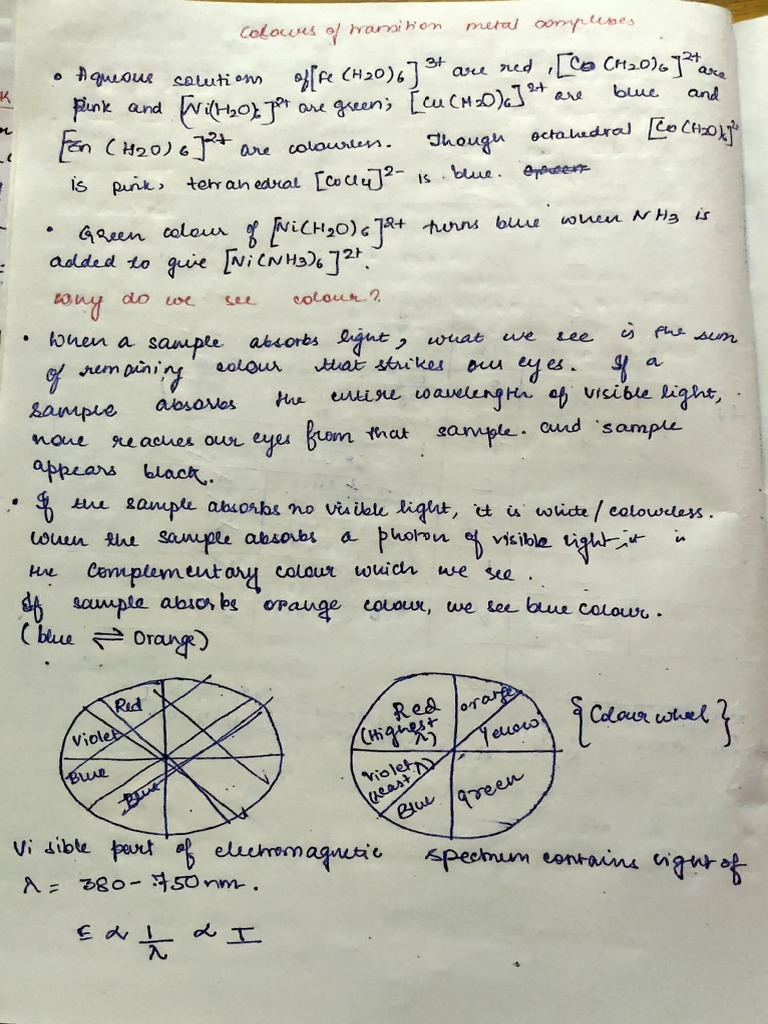 Colours of transition metal complexes
• Aqueous solutions of [Fe(H2O)6]3+ are red, [Co(H2O)6]2+ are
pink and [Ni(H2O)6]2+ are green; [Cu(H2O)6]2+ are blue and
[Zn(H2O)6]2+ are colourless. Though octahedral [Co(H2O)6]2+
is pink, tetrahedral [CoCl4]2- is blue.
• Green colour of [Ni(H2O)6]2+ turns blue when NH3 is
added to give [Ni(NH3)6]2+.
Why do we see colour?
• When a sample absorbs light, what we see is the sum
of remaining colour that strikes our eyes. If a
sample absorbs the entire wavelength of visible light,
none reaches our eyes from that sample. and sample
appears black.
• If the sample absorbs no visible light, it is white/colourless.
When the sample absorbs a photon of visible light, it is
the complementary colour which we see.
If sample absorbs orange colour, we see blue colour.
(blue ⇌ Orange)
Red
Violet
Blue
Blue
Red
(Highest λ)
orange
Yellow
Violet
(least λ)
Blue
green
{Colour wheel}
Visible part of electromagnetic spectrum contains light of
λ = 380-750nm.
E ∝ 1/λ ∝ I